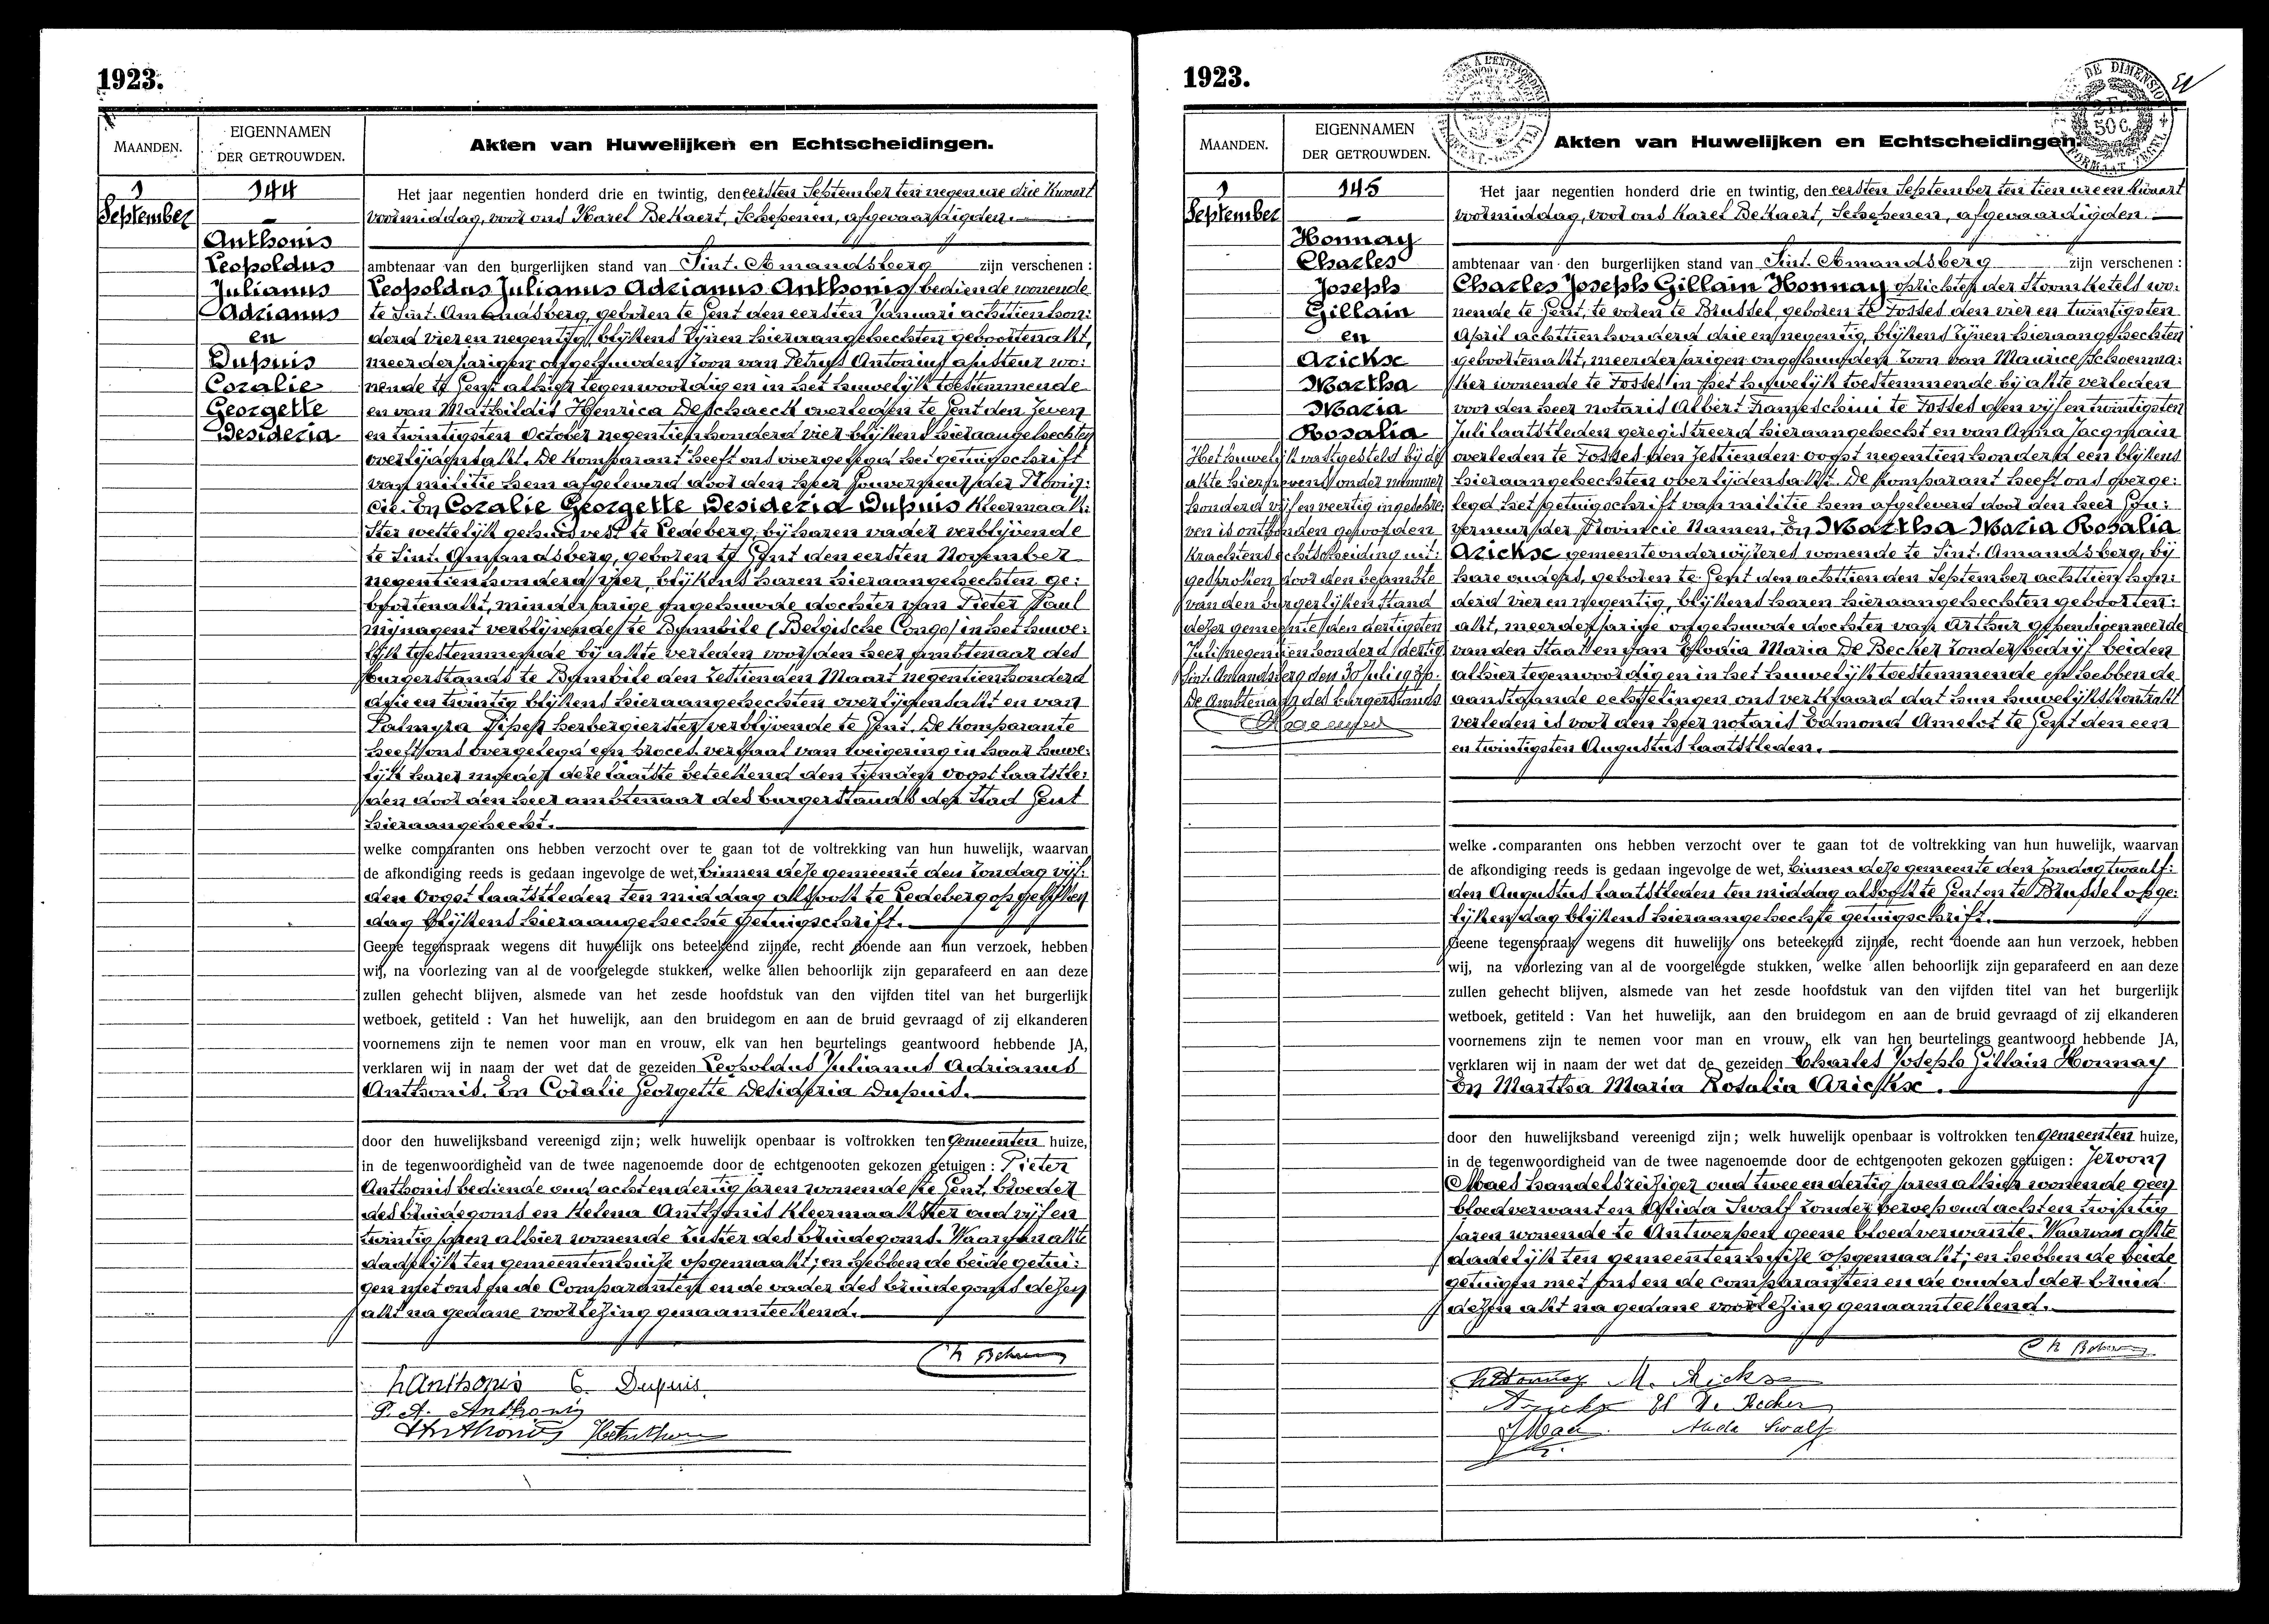 1923.
MAANDEN.
EIGENNAMEN
DER GETROUWDEN.
Akten van Huwelijken en Echtscheidingen.
1
September
144
Anthonis
Leopoldus
Julianus
Adrianus
en
Dupuis
Coralie
Georgette
Desideria
Het jaar negentien honderd drie en twintig, den eersten September ten negen ure drie kwart
voormiddag, voor ons Karel Bekaert, Schepenen, afgevaardigden.
ambtenaar van den burgerlijken stand van Sint. Amandsberg zijn verschenen :
Leopoldus Julianus Adrianus Anthonis, bediende wonende
te Sint. Amandsberg, geboren te Gent den eersten Januari achttien hon:
derd vier en negentig, blijkens zijnen hieraangehechten geboortenakt,
meerderjarigen ongehuwden zoon van Petrus Antonius ajusteur wo:
nende te Gent alhier tegenwoordig en in het huwelijk toestemmende
en van Mathildis Henrica Deschaeck overleden te Gent den zeven
en twintigsten October negentien honderd vier blijkens hieraangehechten
overlijdensakt. De komparant heeft ons overgelegd het getuigschrift
van militie hem afgeleverd door den heer Gouverneur der Provin:
cie. En Coralie Georgette Desideria Dupuis kleermaak:
ster wettelijk gehuisvest te Ledeberg, bij haren vader verblijvende
te Sint. Amandsberg, geboren te Gent den eersten November
negentien honderd vier, blijkens haren hieraangehechten ge:
boortenakt, minderjarige ongehuwde dochter van Pieter Paul
mijnagent verblijvende te Bambile (Belgische Congo) in het huwe:
lijk toestemmende bij akte verleden voor den heer ambtenaar des
burgerstands te Bambile den zestienden Maart negentien honderd
drie en twintig blijkens hieraangehechten overlijdensakt en van
Palmyra herbergierster verblijvende te Gent. De komparante
heeft ons overgelegd een proces verbaal van weigering in haar huwe:
lijk harer moeder deze laatste beteekend den tienden oogst laatstle:
den door den heer ambtenaar des burgerstands der Stad Gent
hieraangehecht.
welke comparanten ons hebben verzocht over te gaan tot de voltrekking van hun huwelijk, waarvan
de afkondiging reeds is gedaan ingevolge de wet, binnen deze gemeente den Zondag vijf:
den Oogst laatstleden ten middag alsook te Ledeberg op gelijken
dag blijkens hieraangehechte getuigschrift.
Geene tegenspraak wegens dit huwelijk ons beteekend zijnde, recht doende aan hun verzoek, hebben
wij, na voorlezing van al de voorgelegde stukken, welke allen behoorlijk zijn geparafeerd en aan deze
zullen gehecht blijven, alsmede van het zesde hoofdstuk van den vijfden titel van het burgerlijk
wetboek, getiteld : Van het huwelijk, aan den bruidegom en aan de bruid gevraagd of zij elkanderen
voornemens zijn te nemen voor man en vrouw, elk van hen beurtelings geantwoord hebbende JA,
verklaren wij in naam der wet dat de gezeiden Leopoldus Julianus Adrianus
Anthonis. En Coralie Georgette Desideria Dupuis.
door den huwelijksband vereenigd zijn; welk huwelijk openbaar is voltrokken ten gemeenten huize,
in de tegenwoordigheid van de twee nagenoemde door de echtgenooten gekozen getuigen : Pieter
Anthonis bediende oud acht en dertig jaren wonende te Gent, broeder
des bruidegoms en Helena Anthonis kleermaakster oud vijf en
twintig jaren alhier wonende zuster des bruidegoms. Waarvan akte
dadelijk ten gemeentenhuize opgemaakt; en hebben de beide getui:
gen met ons en de Comparanten en de vader des bruidegoms dezen
akt na gedane voorlezing genaamteekend.
L Anthonis C. Dupuis
P. A. Anthonis
Anthonis
1923.
MAANDEN.
EIGENNAMEN
DER GETROUWDEN.
Akten van Huwelijken en Echtscheidingen.
DE DIMENSIO
2 Fr.
50 c.
1
September
145
Honnay
Charles
Joseph
Gillain
en
Arickse
Martha
Maria
Rosalia
Het huwelijk vastgesteld bij de
akte hiernevens onder nummer
honderd vijf en veertig ingeschre:
ven is ontbonden geworden
krachtens echtscheiding uit:
gesproken door den beambte
van den burgerlijken stand
dezer gemeente den dertigsten
Juli negentien honderd dertig
Sint. Amandsberg den 30 Juli 1930.
De Ambtenaar des burgerstands
Het jaar negentien honderd drie en twintig, den eersten September ten tien ure een kwart
voormiddag, voor ons Karel Bekaert, Schepenen, afgevaardigden.
ambtenaar van den burgerlijken stand van Sint. Amandsberg zijn verschenen :
Charles Joseph Gillain Honnay oprichter der stoomketels wo:
nende te Gent, te voren te Brussel, geboren te Fosses den vier en twintigsten
April achttien honderd drie en negentig, blijkens zijnen hieraangehechten
geboortenakt, meerderjarigen ongehuwden zoon van Maurice, Schoenma:
ker wonende te Fosses in het huwelijk toestemmende bij akte verleden
voor den heer notaris Albert Franceschini te Fosses den vijf en twintigsten
Juli laatstleden geregistreerd hieraangehecht en van Anna Jacqmain
overleden te Fosses den zestienden oogst negentien honderd een blijkens
hieraangehechten overlijdensakt. De komparant heeft ons overge:
legd het getuigschrift van militie hem afgeleverd door den heer Gou:
verneur der Provincie Namen. En Martha Maria Rosalia
Arickse gemeenteonderwijzeres wonende te Sint. Amandsberg, bij
hare ouders, geboren te Gent den achttienden September achttien hon:
derd vier en negentig, blijkens haren hieraangehechten geboorten:
akt, meerderjarige ongehuwde dochter van Arthur gepensioenneerde
van den Staat en van Elodia Maria De Becker zonder bedrijf beiden
alhier tegenwoordig en in het huwelijk toestemmende en hebben de
aanstaande echtelingen ons verklaard dat hun huwelijkskontrakt
verleden is voor den heer notaris Edmond Amelot te Gent den een
en twintigsten Augustus laatstleden.
welke comparanten ons hebben verzocht over te gaan tot de voltrekking van hun huwelijk, waarvan
de afkondiging reeds is gedaan ingevolge de wet, binnen deze gemeente den Zondag twaalf:
den Augustus laatstleden ten middag alsook te Gent en te Brussel op ge:
lijken dag blijkens hieraangehechte getuigschrift.
Geene tegenspraak wegens dit huwelijk ons beteekend zijnde, recht doende aan hun verzoek, hebben
wij, na voorlezing van al de voorgelegde stukken, welke allen behoorlijk zijn geparafeerd en aan deze
zullen gehecht blijven, alsmede van het zesde hoofdstuk van den vijfden titel van het burgerlijk
wetboek, getiteld : Van het huwelijk, aan den bruidegom en aan de bruid gevraagd of zij elkanderen
voornemens zijn te nemen voor man en vrouw, elk van hen beurtelings geantwoord hebbende JA,
verklaren wij in naam der wet dat de gezeiden Charles Joseph Gillain Honnay
En Martha Maria Rosalia Arickse.
door den huwelijksband vereenigd zijn; welk huwelijk openbaar is voltrokken ten gemeenten huize,
in de tegenwoordigheid van de twee nagenoemde door de echtgenooten gekozen getuigen : Jeroom
Maes handelsreiziger oud twee en dertig jaren alhier wonende geen
bloedverwant en Alida Swalf zonder beroep oud acht en twintig
jaren wonende te Antwerpen geene bloedverwante. Waarvan akte
dadelijk ten gemeentenhuize opgemaakt; en hebben de beide
getuigen met ons en de comparanten en de ouders der bruid
dezen akt na gedane voorlezing genaamteekend.
Ch Honnay M. Rickse
El. De Becker
J Maes Alida Swalf